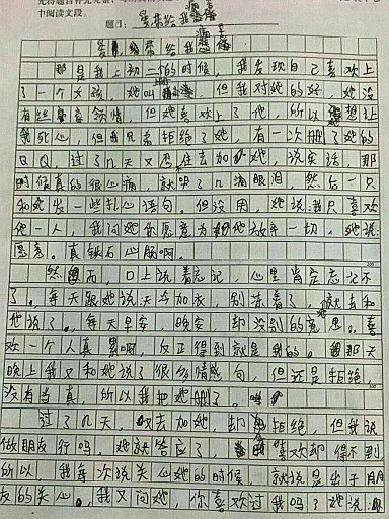 先将题目补充完
中阅读文段。
题目：给我
给我
那是我上初二的时候，我发现自己喜欢上
了一个女孩，她叫，但我对她的好，她没
有丝领情，但她喜欢上了他，所以想让
我死心，但我兄弟拒绝了她，有一次删了她的
QQ，过了几天又忍不住去加她，说实话，那
时候真的很心痛，就哭了几滴眼泪，然后一只
和她发一些扎心语句。但没用，她说我只喜欢
他一人，我问她你愿意为他放弃一切，她说
愿意。真铁石心肠啊。
然而，口上说着忘记，心里肯定忘不
了。每天跟她说天冷加衣，别冻着了，她去和
他说了。每天早安，晚安，却没别的意思。喜
欢一个人真累啊，反正得到就是我的。那天
晚上我又和她说了很多情句，但还是拒绝
没有当真，所以我把她删了。
过了几天，又去加她，却拒绝，但我说
做朋友行吗，她就答应了，喜欢却得不到
所以，我每次说关心她的时候，就说是出于朋
友的关心。我又问她，你喜欢过我吗？她说